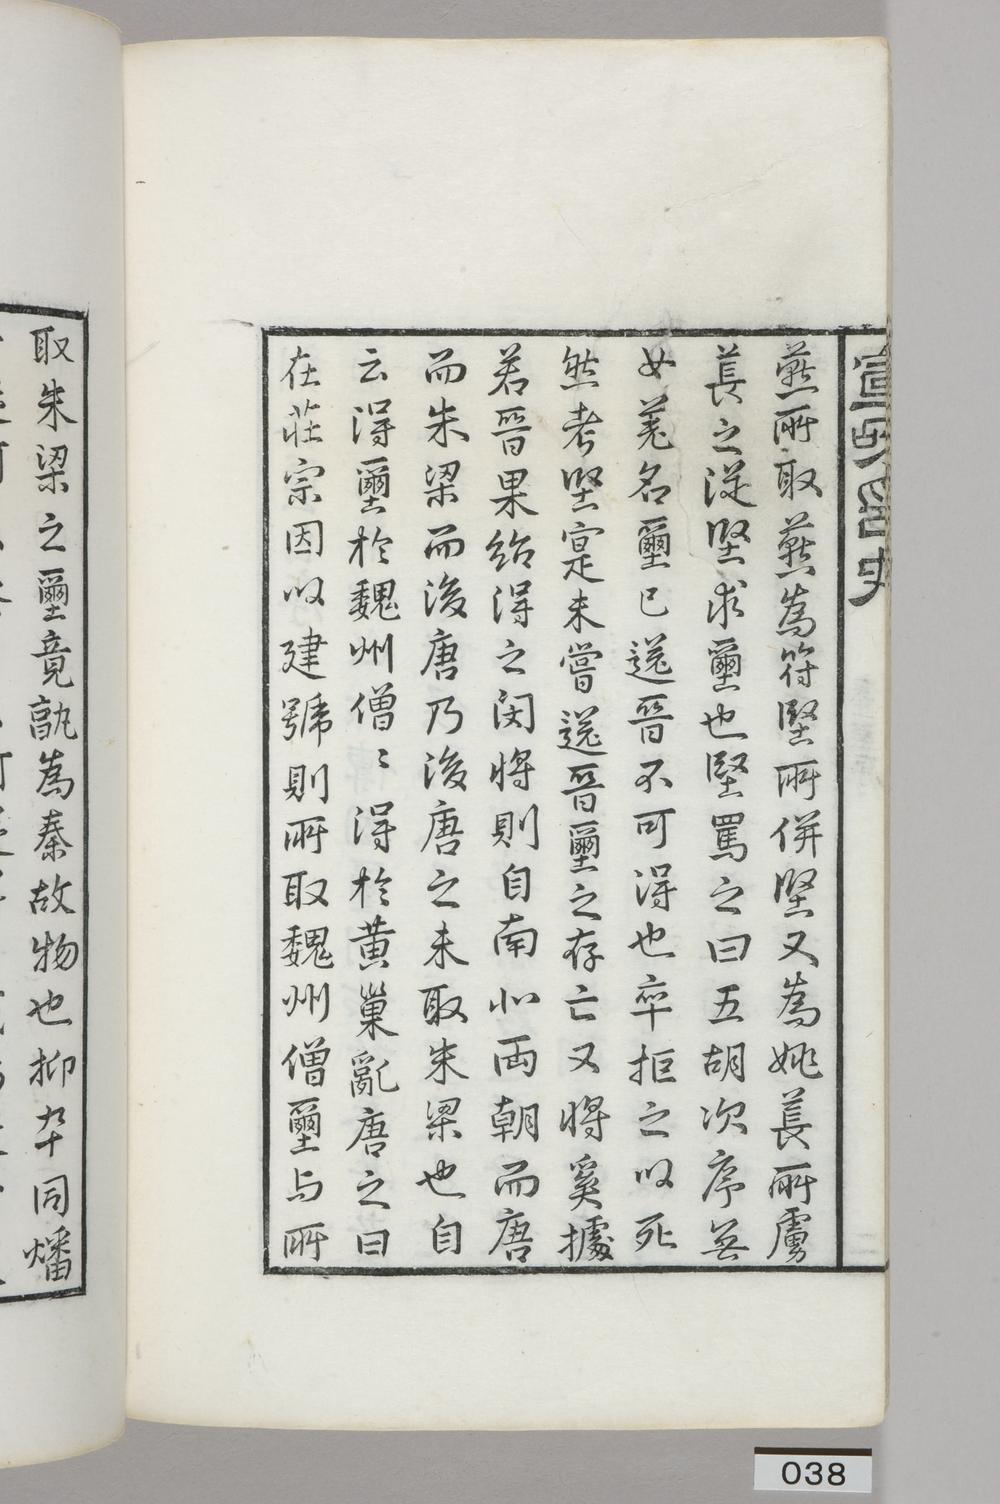 燕所取燕為苻堅所併堅又為姚萇所虜
萇之從堅求璽也堅罵之曰五胡次序無
女羌名璽已送晉不可得也卒拒之以死
然考堅寔未嘗送晉璽之存亡又將奚據
若晉果紿得之閔將則自南北両朝而唐
而朱梁而後唐乃後唐之未取朱梁也自
云得璽於魏州僧〻得於黄巢亂唐之日
在莊宗因以建號則所取魏州僧璽与所
取朱梁之璽竟孰為秦故物也抑卒同燔
038